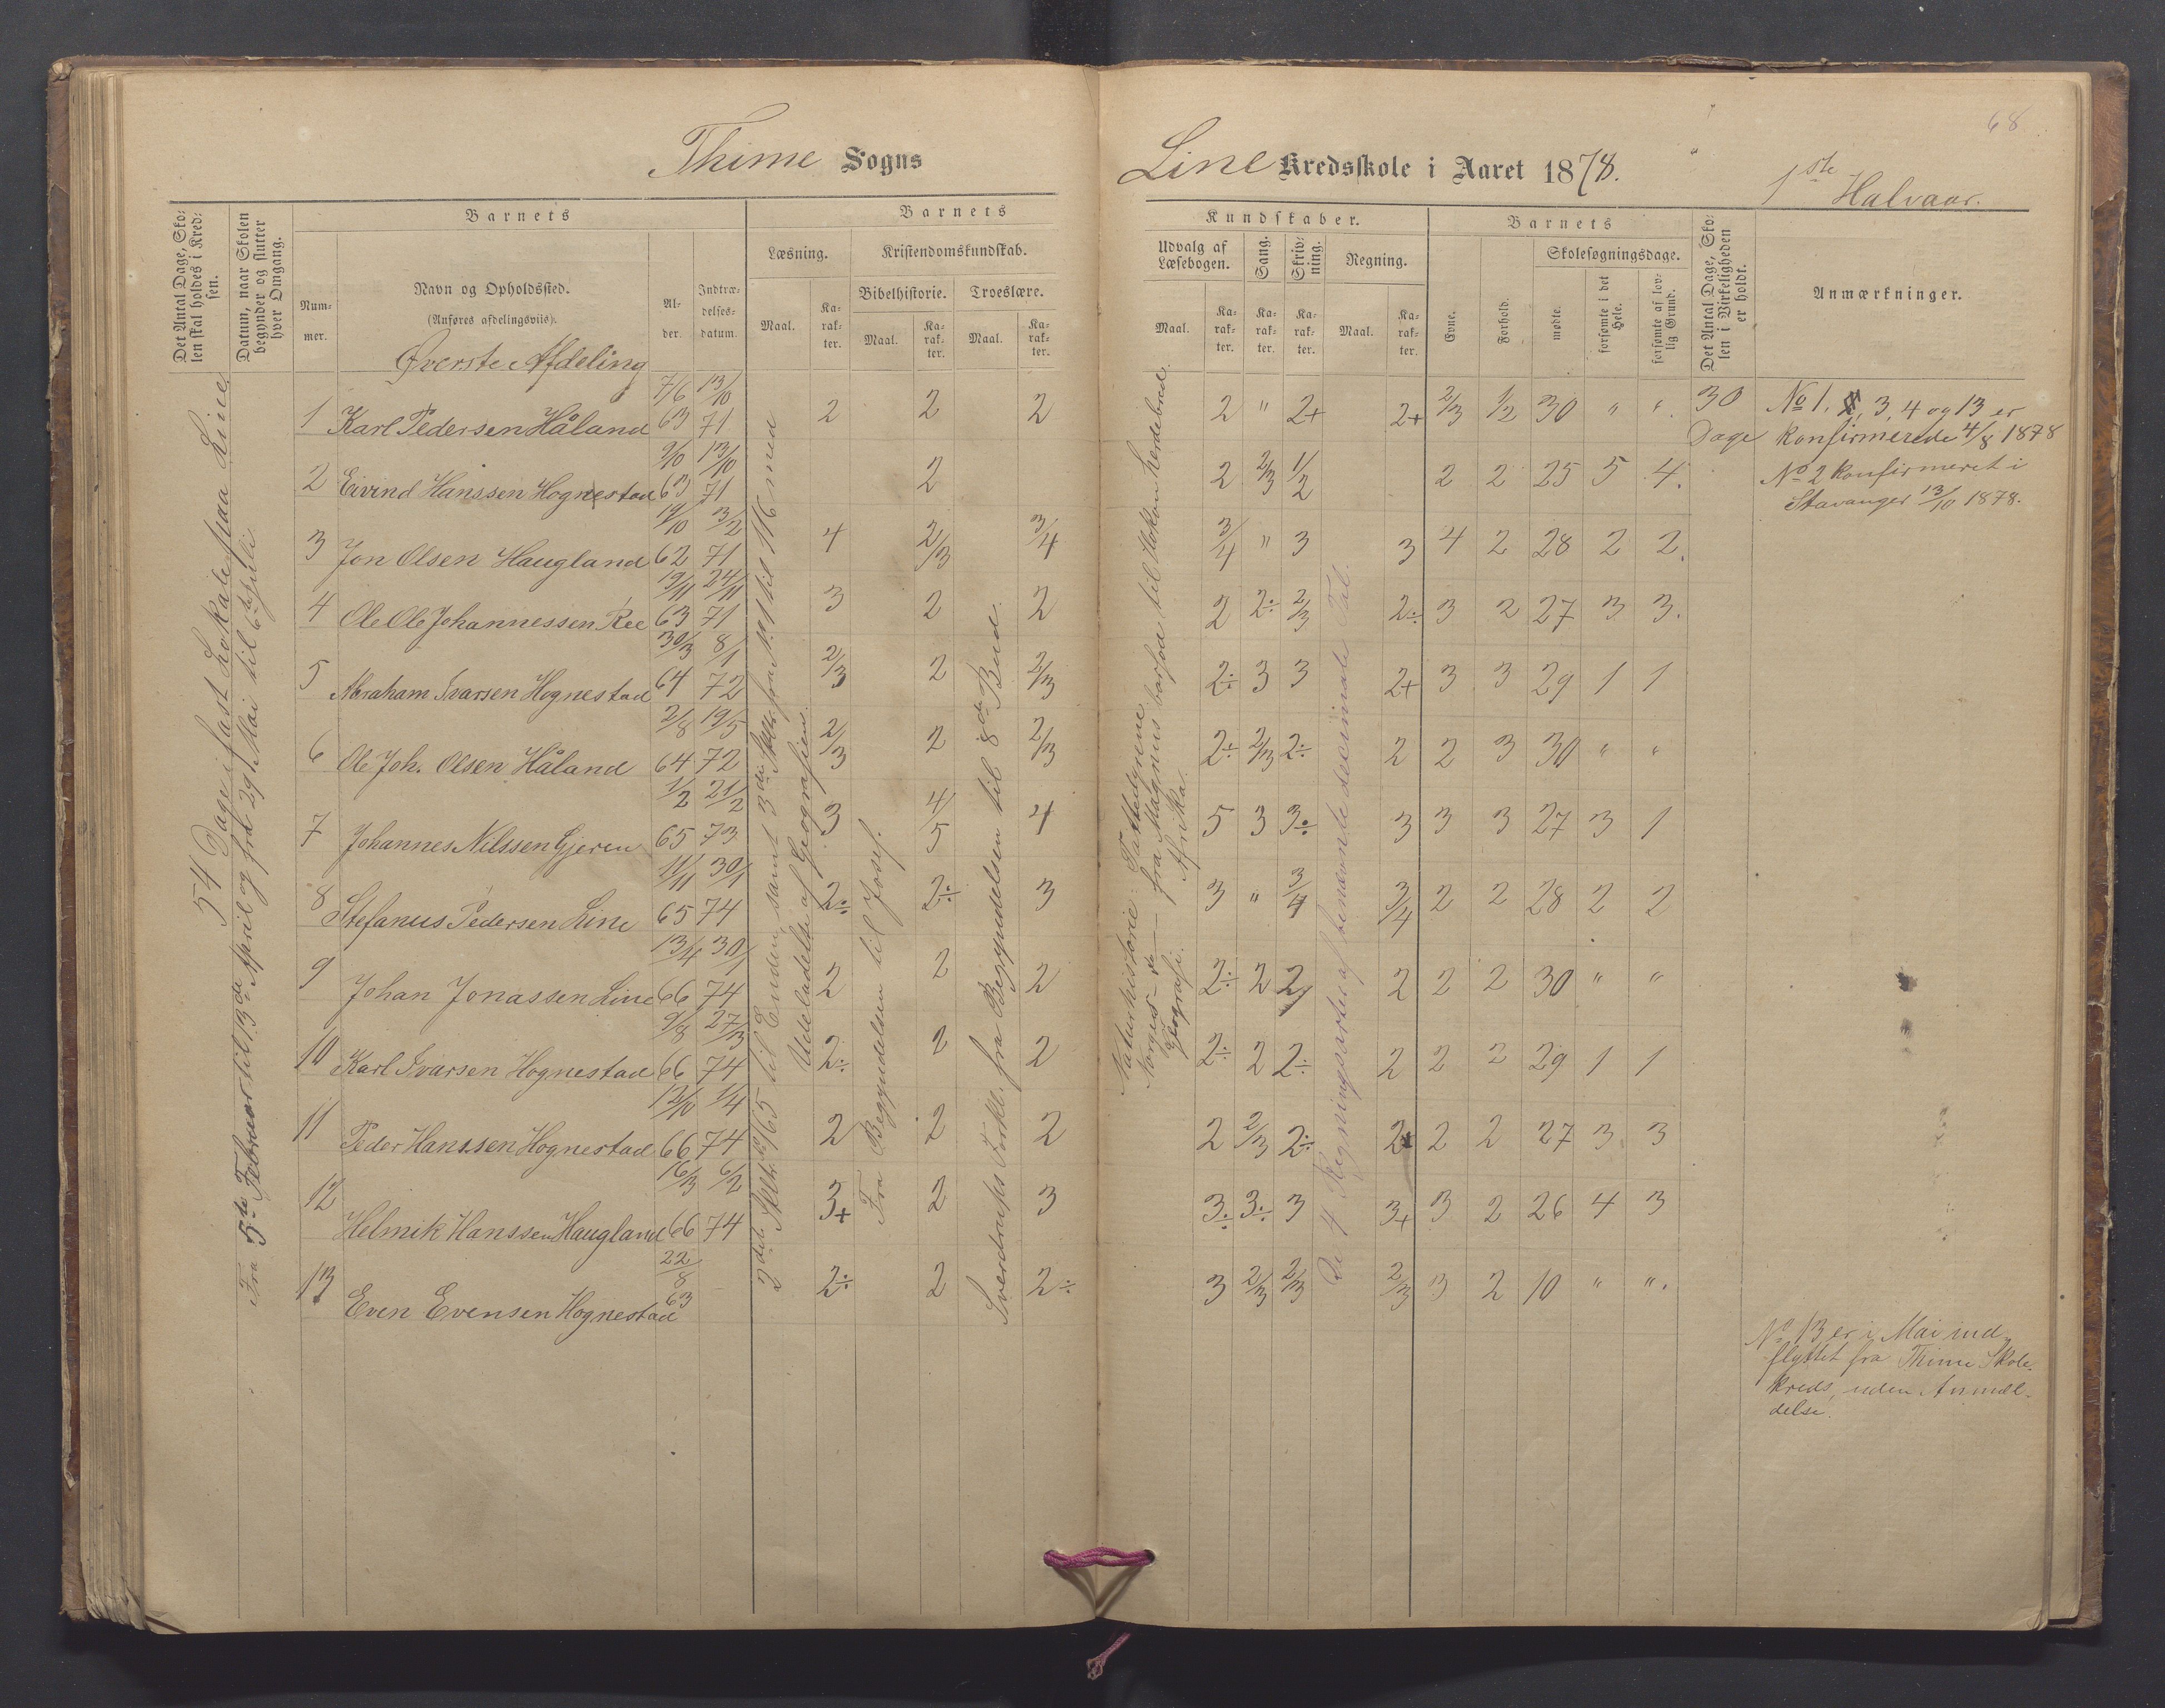 68
Thime Sogns
Line Kredsskole i Aaret 1878.
1ste Halvaar.
Det Antal Dage, Skolen skal holdes i Kredsen.
Datum, naar Skolen begynder og slutter hver Omgang.
Barnets
Nummer.
Navn og Opholdssted.
(Anføres afdelingsviis).
Alder.
Indtrædelsesdatum.
Barnets
Læsning.
Kristendomskundskab.
Bibelhistorie.
Troeslære.
Maal.
Karakter.
Maal.
Karakter.
Maal.
Karakter.
Kundskaber.
Udvalg af Læsebogen.
Sang.
Skrivning.
Regning.
Maal.
Karakter.
Karakter.
Karakter.
Maal.
Karakter.
Barnets
Evne.
Forhold.
Skolesøgningsdage.
mødte.
forsømte i det Hele.
forsømte af lovlig Grund.
Det Antal Dage, Skolen i Virkeligheden er holdt.
Anmærkninger.
Øverste Afdeling
54 Dage i fast Lokale paa Line
Fra 5te Februar til 13de April og fra 29 Mai til 6te Juli
1 Karl Pedersen Håland 7/6 63 13/10 71 2 2 2 2 " 2+ 2+ 2/3 1/2 30 " " 30 Dage
2 Eivind Hanssen Hognestad 2/10 63 13/10 71 2 2 2/3 1/2 2 2 25 5 4.
3 Jon Olsen Haugland 19/10 62 3/2 71 4 2/3 3/4 3/4 " 3 3 4 2 28 2 2.
4 Ole Ole Johannessen Ree 19/11 63 24/11 71 3 2 2 2 2÷ 2/3 2÷ 3 2 27 3 3.
5 Abraham Ivarsen Hognestad 30/3 64 8/1 72 2/3 2 2/3 2÷ 3 3 2+ 3 3 29 1 1
6 Ole Joh. Olsen Håland 2/8 64 19/5 72 2/3 2 2/3 2÷ 2/3 2÷ 2 2 3 30 " "
7 Johannes Nilssen Gjeren 1/2 65 21/2 73 3 4/5 4 5 3 3÷ 3 3 3 27 3 1
8 Stefanus Pedersen Line 11/11 65 30/1 74 2÷ 2÷ 3 3 " 3/4 3/4 2 2 28 2 2
9 Johan Jonassen Line 13/4 66 30/1 74 2 2 2 2÷ 2 2 2 2 2 30 " "
10 Karl Ivarsen Hognestad 9/8 66 27/3 74 2÷ 2 2 2÷ 2 2÷ 2 2 2 29 1 1
11 Peder Hanssen Hognestad 12/10 66 1/4 74 2 2 2 2 2/3 2÷ 2+ 2 2 27 3 3
12 Helmik Hanssen Haugland 16/3 66 6/2 74 3+ 2 3 3÷ 3÷ 3 3+ 3 2 26 4 3
13 Even Evensen Hognestad 22/8 63 2÷ 2 2÷ 3 2/3 2/3 2/3 3 2 10 " ".
2det Skltr. 165 til Enden, samt 3die Skltr. fra No 1 til 116 med
Udeladelse af Geografien.
Fra Begyndelsen til Josef.
Sverdrups Forkl. fra Begyndelsen til 8de Bud.
Naturhistorie: Pattedyrene
Norges – de – – fra Magnus barfod til Haakon Herdebred.
Geografi. Afrika.
De 4 Regningsarter af benævnte decimale Tal.
No 1, 3, 4 og 13 er
konfirmerede 4/8 1878
No 2 konfirmeret i
Stavanger 13/10 1878.
No 13 er i Mai ind-
flyttet fra Thime Skole-
kreds, uden Anmel-
delse.